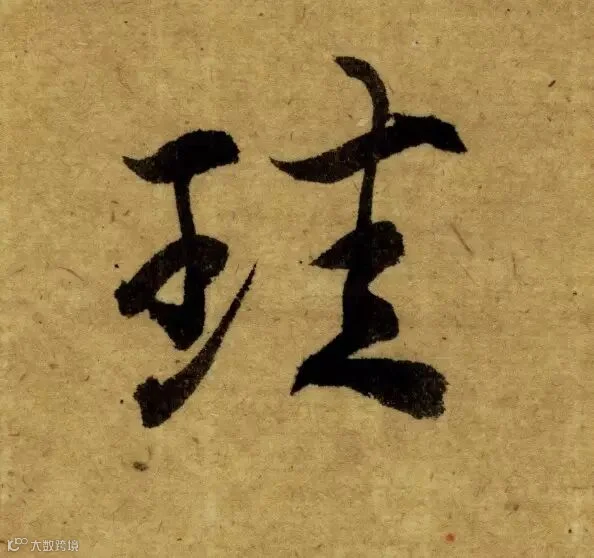 珪
大数跨境